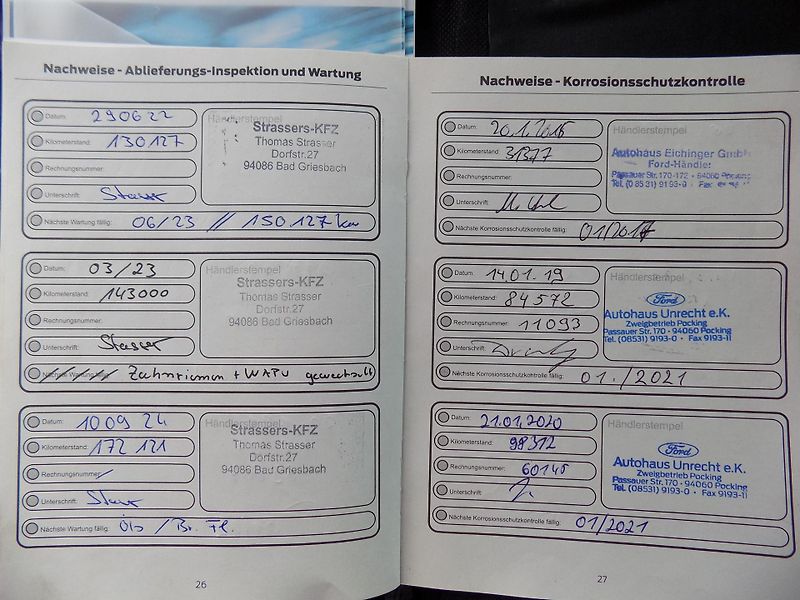 Nachweise - Ablieferungs-Inspektion und Wartung
Datum: 290622
Kilometerstand: 130127
Rechnungsnummer:
Unterschrift:
Händlerstempel
Strassers-KFZ
Thomas Strasser
Dorfstr.27
94086 Bad Griesbach
Nächste Wartung fällig: 06/23 // 150.127 km
Datum: 03/23
Kilometerstand: 143000
Rechnungsnummer:
Unterschrift: Stasser
Händlerstempel
Strassers-KFZ
Thomas Strasser
Dorfstr.27
94086 Bad Griesbach
Nächste Wartung fällig: Zahnriemen + WAPU gewechselt
Datum: 10 09 24
Kilometerstand: 172 121
Rechnungsnummer:
Unterschrift:
Händlerstempel
Strassers-KFZ
Thomas Strasser
Dorfstr.27
94086 Bad Griesbach
Nächste Wartung fällig: Öls / Br. Fl.
26
Nachweise - Korrosionsschutzkontrolle
Datum: 20.1.2016
Kilometerstand: 31377
Rechnungsnummer:
Unterschrift:
Händlerstempel
Autohaus Eichinger GmbH
Ford-Händler
Passauer Str. 170-172 · 94060 Pocking
Tel. (0 85 31) 91 93-0 · Fax
Nächste Korrosionsschutzkontrolle fällig: 01/2017
Datum: 14.01.19
Kilometerstand: 84572
Rechnungsnummer: 11093
Unterschrift:
Händlerstempel
Ford
Autohaus Unrecht e.K.
Zweigbetrieb Pocking
Passauer Str. 170 · 94060 Pocking
Tel. (08531) 9193-0 · Fax 9193-11
Nächste Korrosionsschutzkontrolle fällig: 01./2021
Datum: 21.01.2020
Kilometerstand: 98312
Rechnungsnummer: 60145
Unterschrift:
Händlerstempel
Ford
Autohaus Unrecht e.K.
Zweigbetrieb Pocking
Passauer Str. 170 · 94060 Pocking
Tel. (08531) 9193-0 · Fax 9193-11
Nächste Korrosionsschutzkontrolle fällig: 01/2021
27